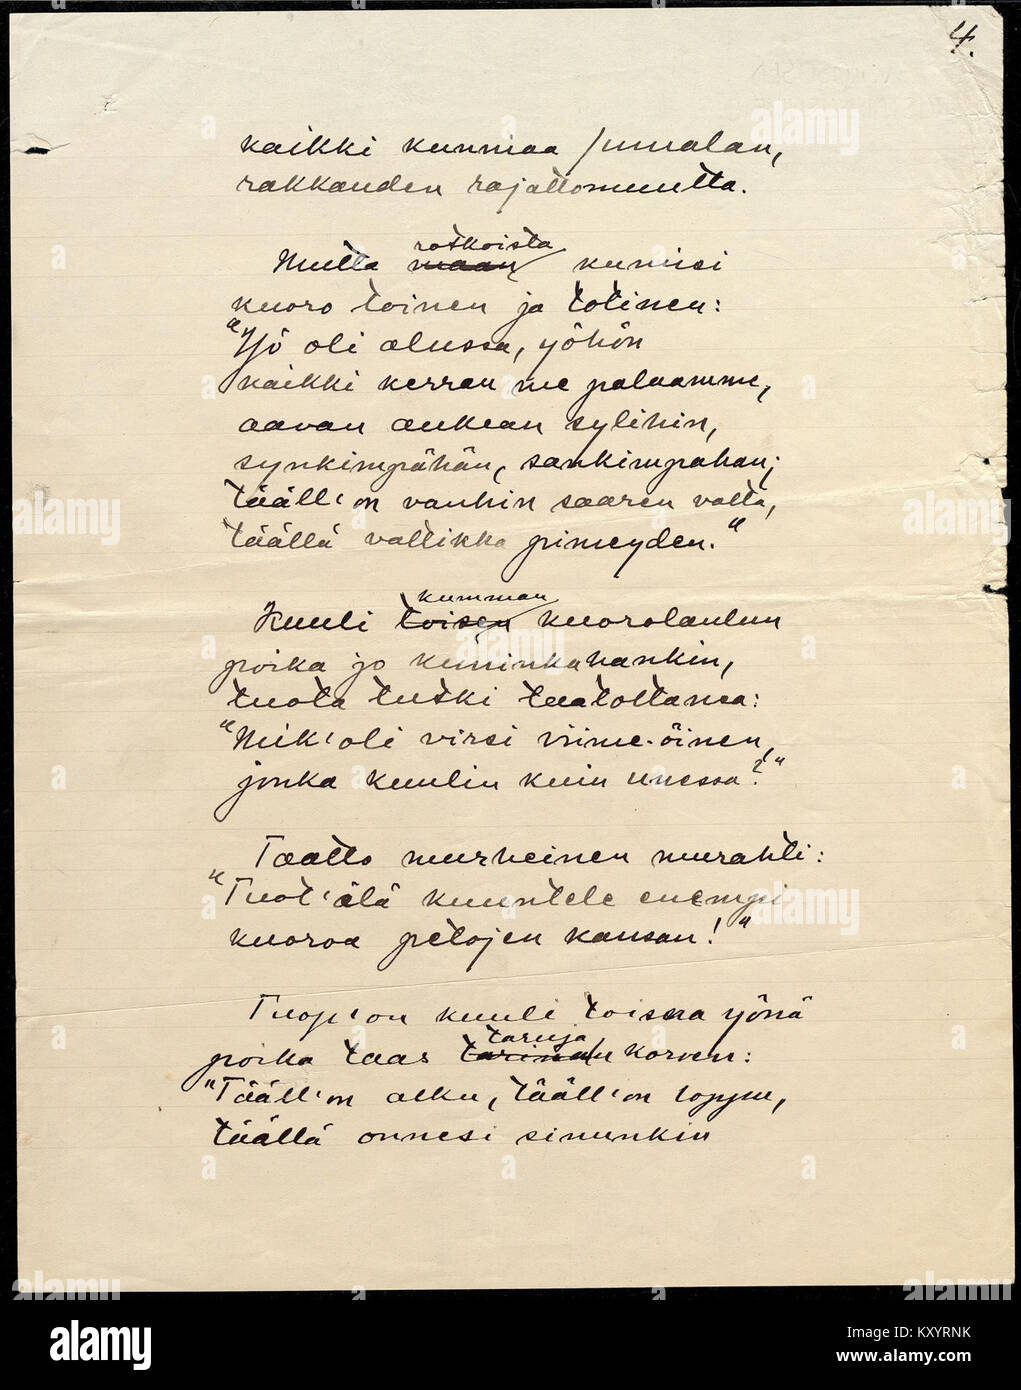 4.
kaikki kunniaa Jumalan,
rakkauden rajattomuutta.
rotkoista
Mutta maan kumisi
kuoro toinen ja totinen:
"Yö oli alussa, yöhön
kaikki kerran me palaamme,
aavan aukean sylihin,
synkimpähän, sankimpahan;
tääll' on vanhin suuren valta,
täällä valtikka pimeyden."
kumman
Kuuli toisen kuorolaulun
poika jo kuninkahankin,
tuota tutki taatoltansa:
"Mik' oli virsi viime-öinen,
jonka kuulin kuin unessa?"
Taatto murheinen murahti:
"Tuot' älä kuuntele enempi
kuoroa petojen kansan!"
Tuop' on kuuli toisna yönä
taruja
poika taas tarinan korven:
"Tääll' on alku, tääll' on loppu,
täällä onnesi sinunkin
alamy
KXYRNK
www.alamy.com